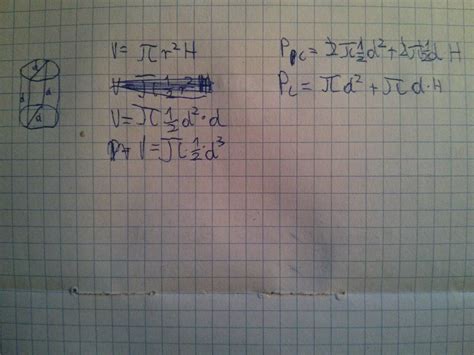 d
d d
d
V = πr²H
V = π½d²·d
V = π·½·d³
Ppc = 2π½d² + 2π½d H
Pc = πd² + πd·H